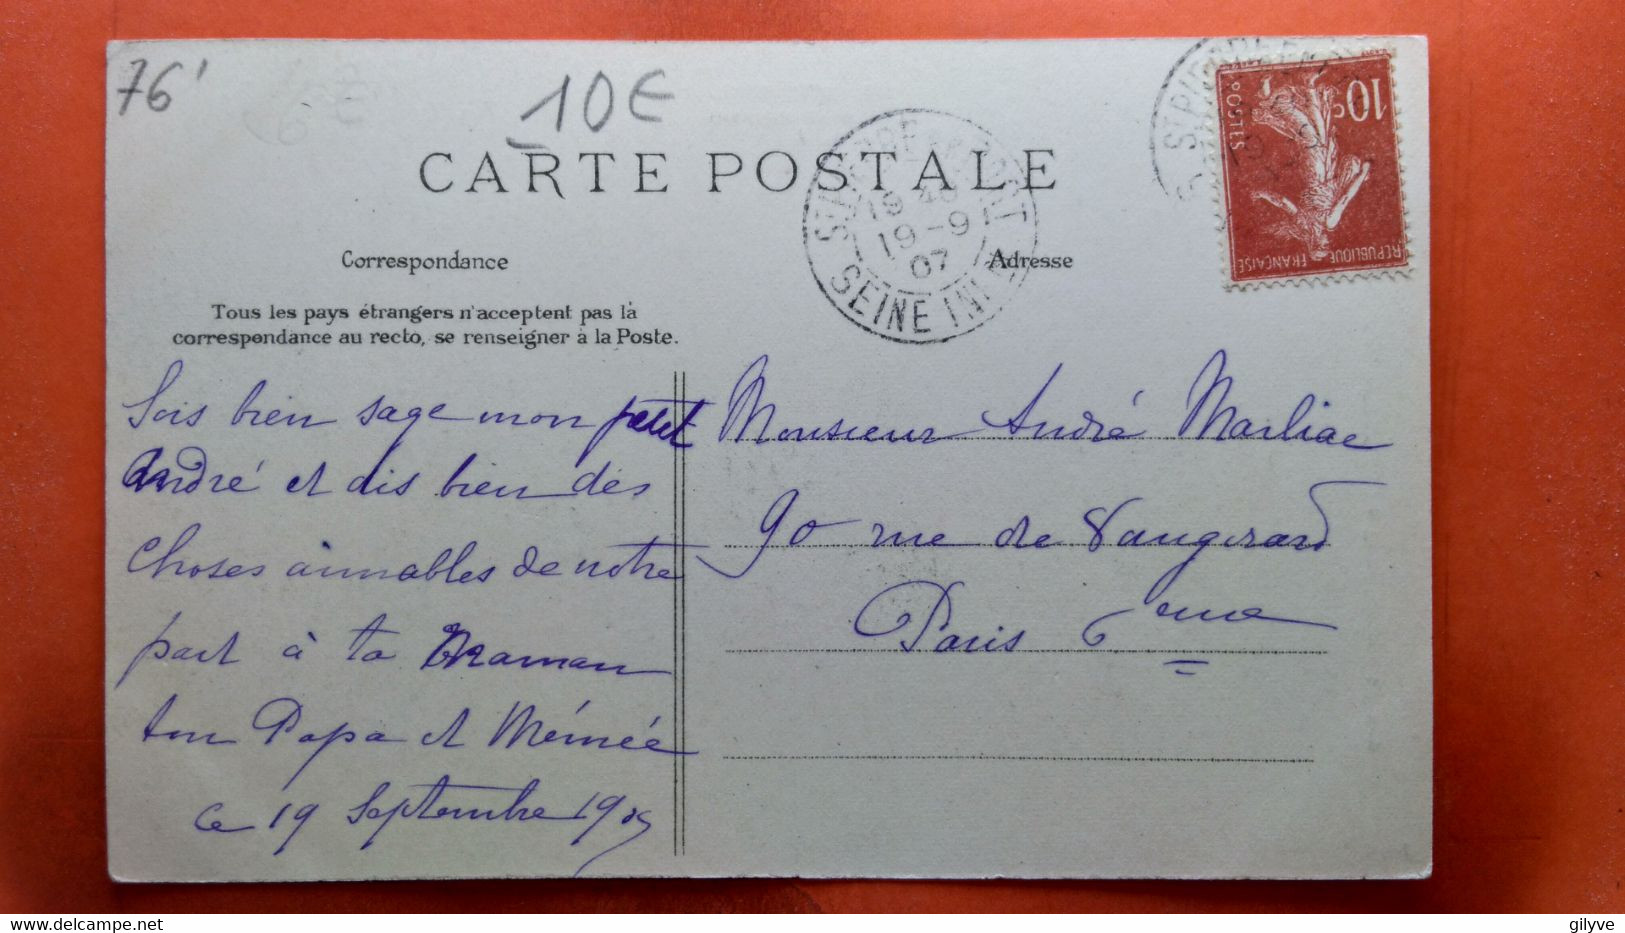 76'
10€
CARTE POSTALE
Correspondance
Adresse
Tous les pays étrangers n'acceptent pas la
correspondance au recto, se renseigner à la Poste.
19 40
19-9
07
SEINE INF
10c
POSTES
REPUBLIQUE FRANÇAISE
Sois bien sage mon petit
André et dis bien des
choses aimables de notre
part à ta Maman
ton Papa et Mémée
ce 19 Septembre 190
Monsieur André Marliac
90 rue de Vaugirard
Paris 6eme
gilyve